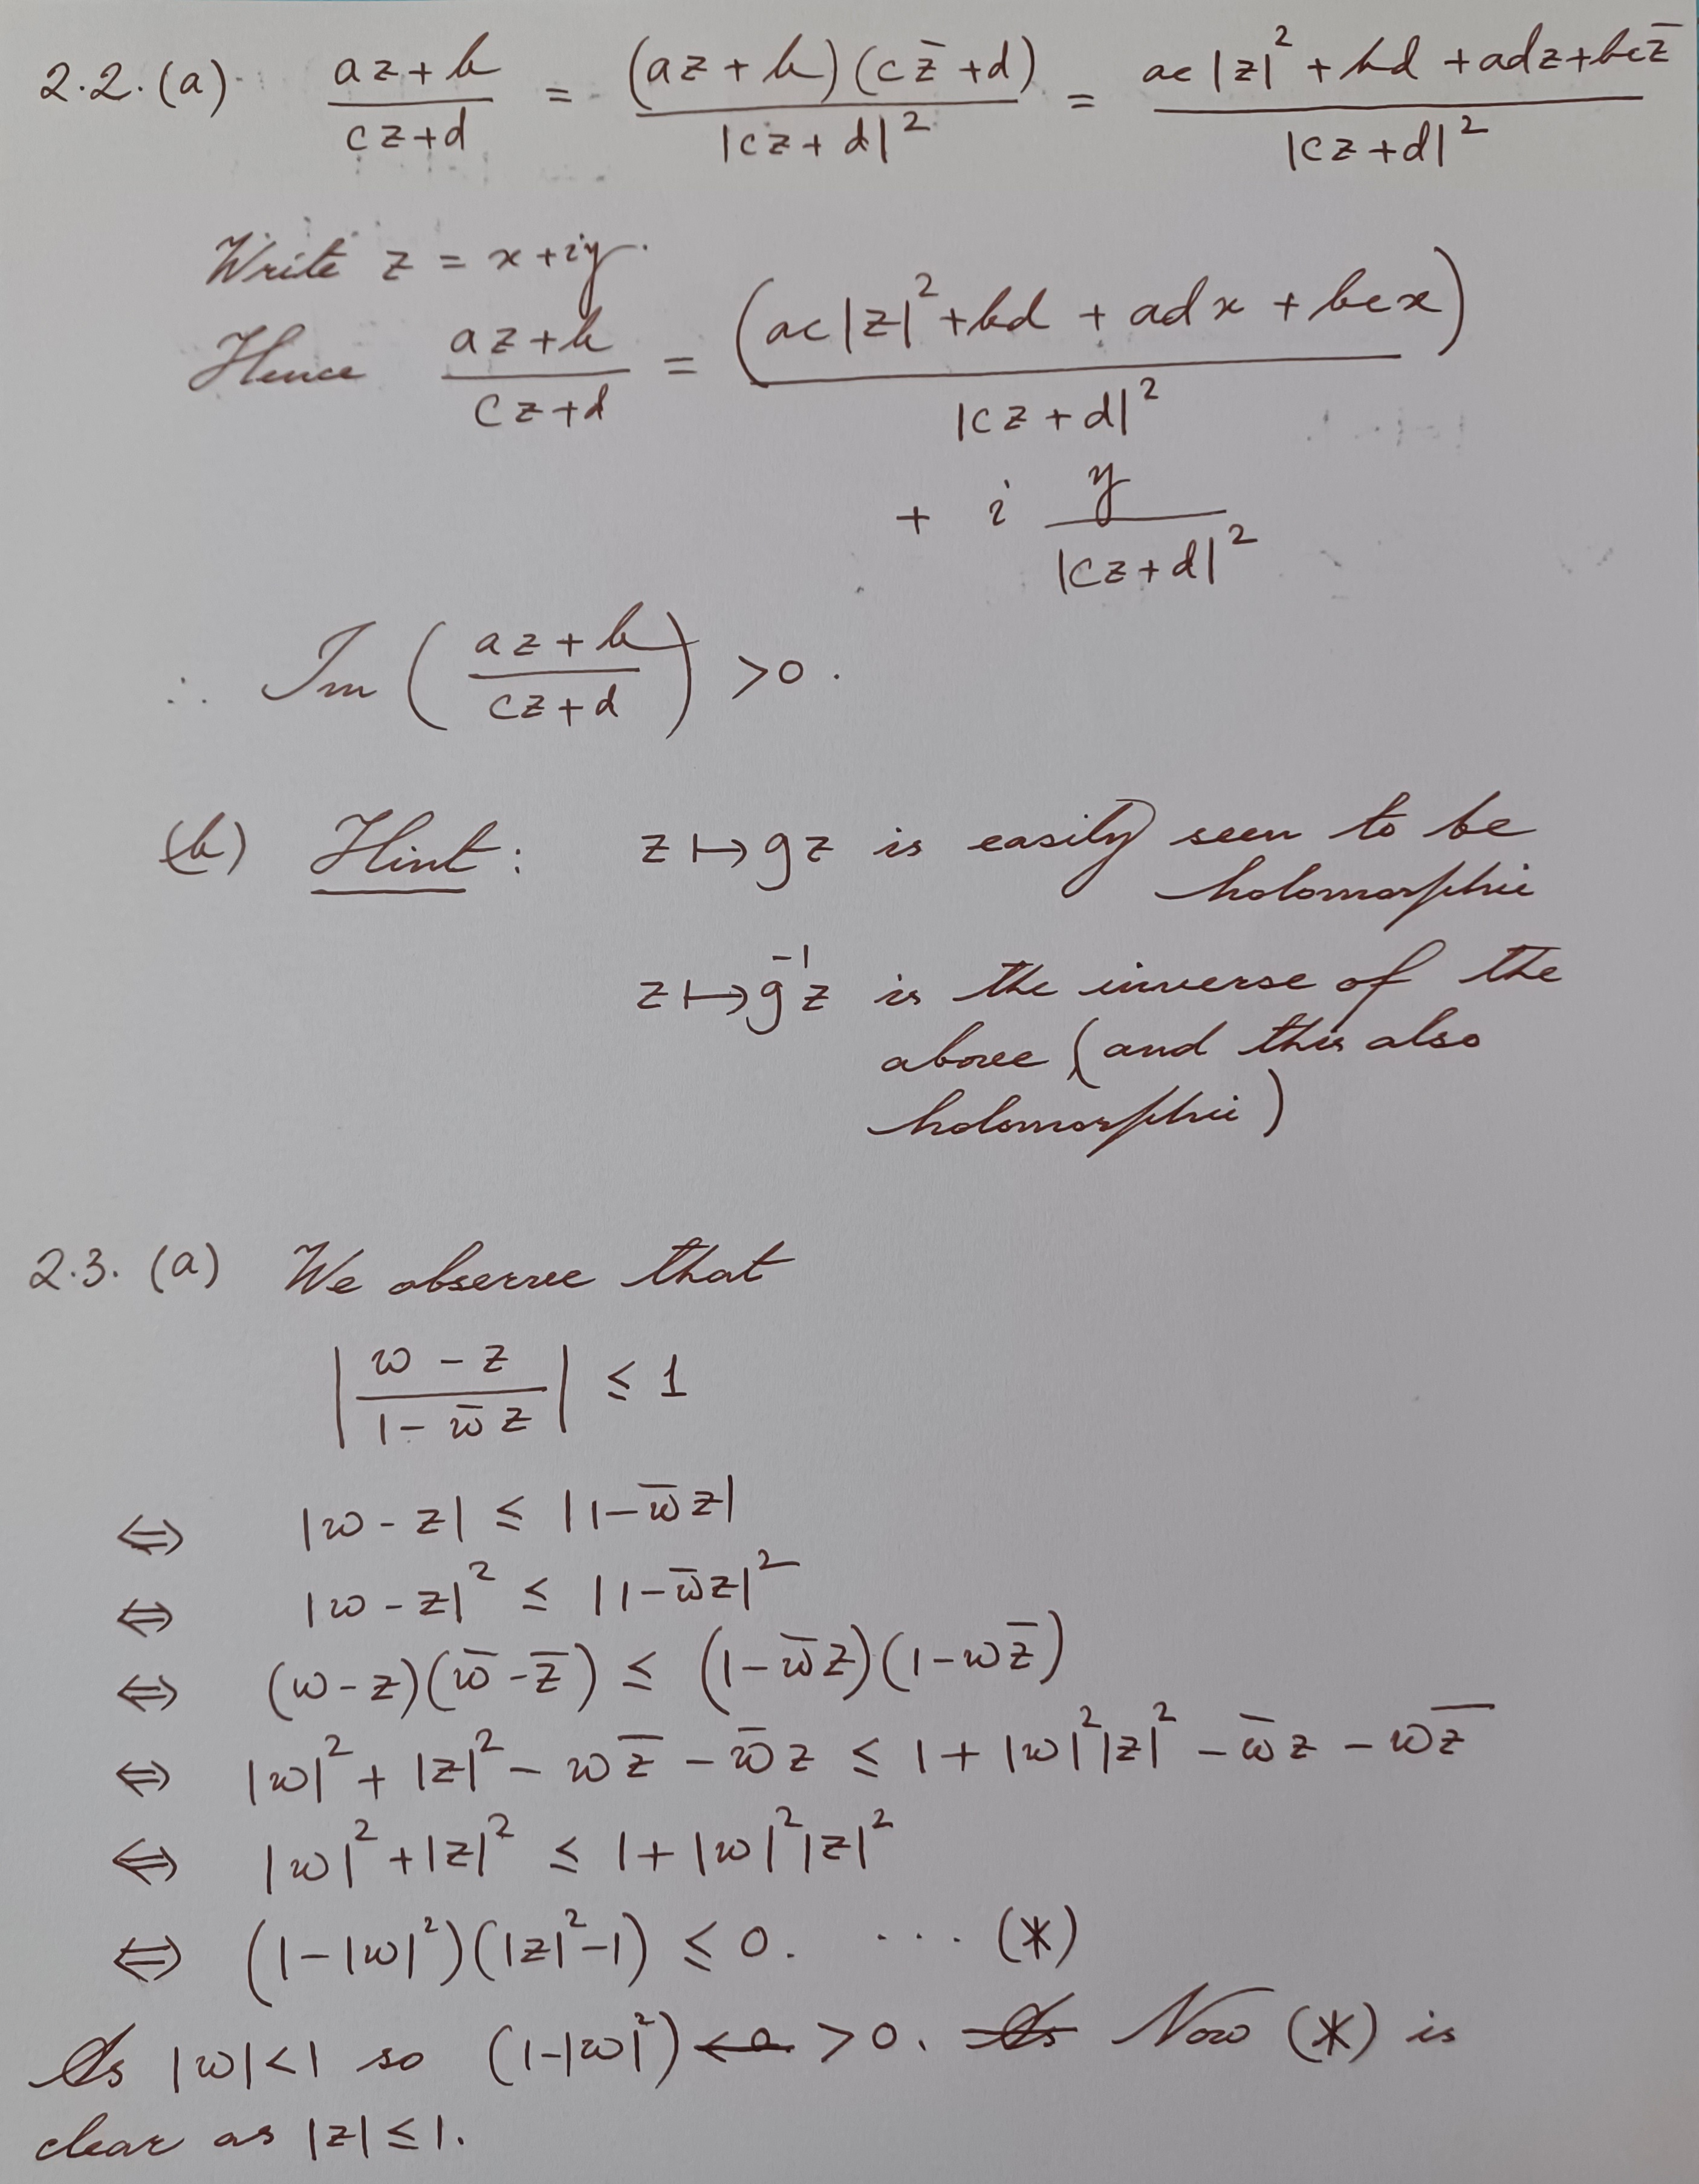 2.2. (a) \frac{az+b}{cz+d} = \frac{(az+b)(c\bar{z}+d)}{|cz+d|^2} = \frac{ac|z|^2+bd+adz+bc\bar{z}}{|cz+d|^2}
Write z = x+iy.
Hence \frac{az+b}{cz+d} = \frac{(ac|z|^2+bd+adx+bcx)}{|cz+d|^2}
+ i \frac{y}{|cz+d|^2}
∴ Im(\frac{az+b}{cz+d}) >0.
(b) Hint: z ↦ gz is easily seen to be
holomorphic
z ↦ g^{-1}z is the inverse of the
above (and this also
holomorphic)
2.3. (a) We observe that
|\frac{w-z}{1-\bar{w}z}| ≤ 1
⇔ |w-z| ≤ |1-\bar{w}z|
⇔ |w-z|^2 ≤ |1-\bar{w}z|^2
⇔ (w-z)(\bar{w}-\bar{z}) ≤ (1-\bar{w}z)(1-w\bar{z})
⇔ |w|^2+|z|^2-w\bar{z}-\bar{w}z ≤ 1+|w|^2|z|^2-\bar{w}z-w\bar{z}
⇔ |w|^2+|z|^2 ≤ 1+|w|^2|z|^2
⇔ (1-|w|^2)(|z|^2-1) ≤ 0. ... (*)
As |w|<1 so (1-|w|^2) <0 >0. As Now (*) is
clear as |z|≤1.